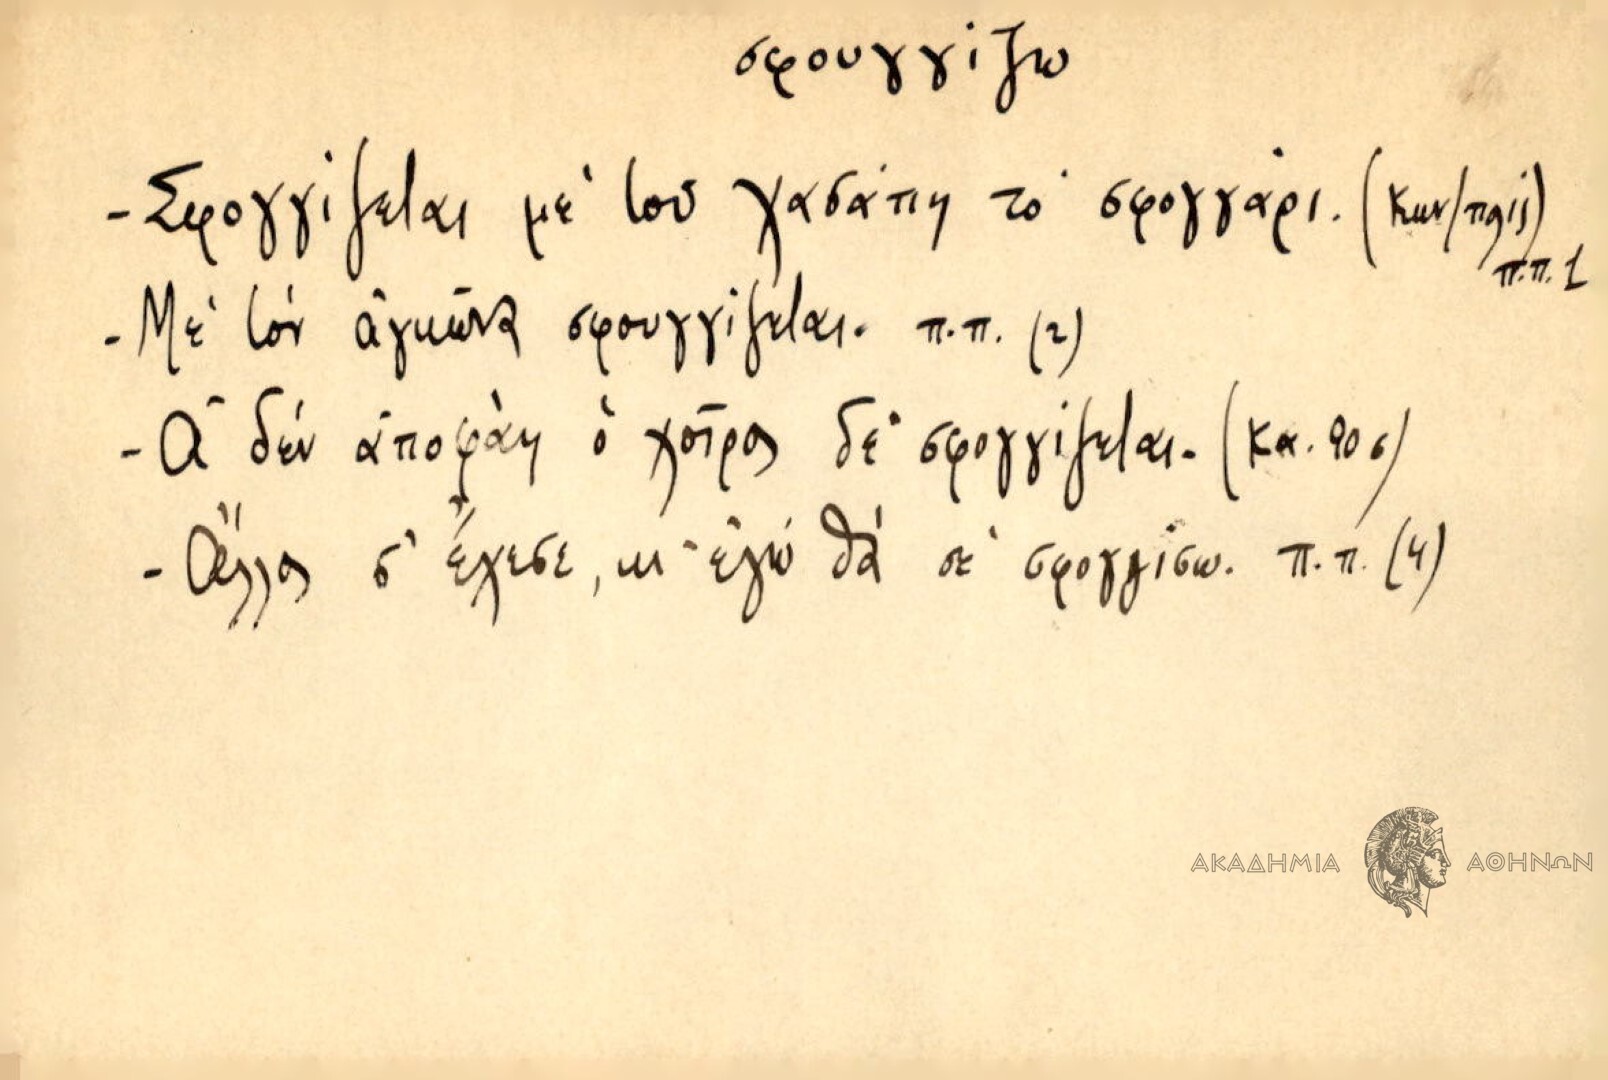 σφουγγίζω
- Σφογγίζεται μὲ τοῦ χασάπη τὸ σφογγάρι. (Κων/πλις)
π.π. 1
- Μὲ τὸν ἀγκῶνα σφουγγίζεται. π.π. (2)
- Ἂ δὲν ἀποφάη ὁ χοῖρος δὲ σφογγίζεται. (Κα.
- Ἄλλος σ' ἔχεσε, κι ἐγὼ θὰ σὲ σφογγίσω. π.π. (4)
ΑΚΑΔΗΜΙΑ ΑΘΗΝΩΝ